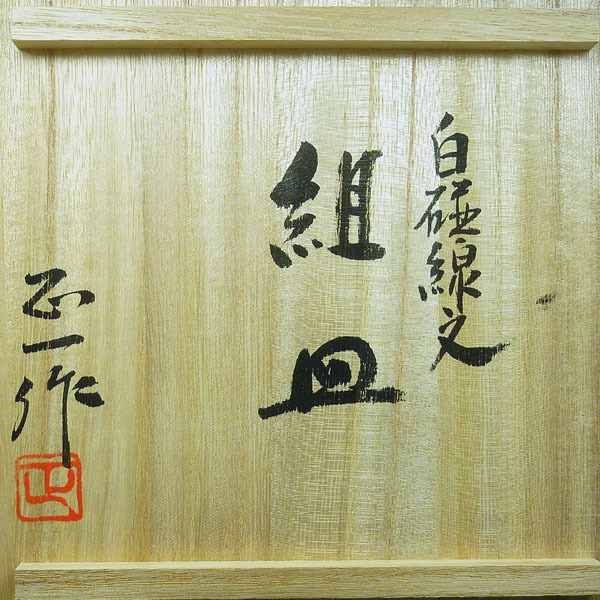 白磁線文
組皿
正一作
正